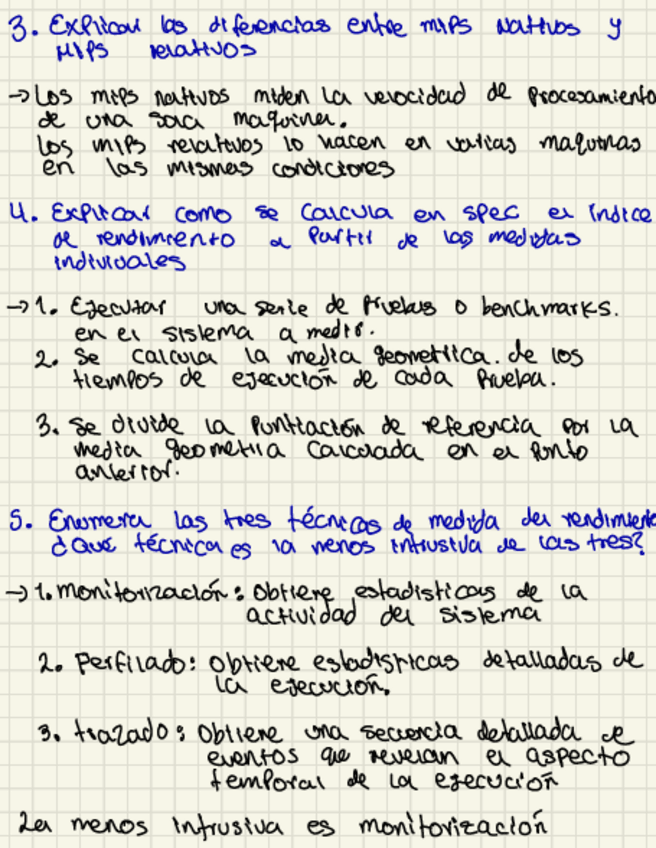 3. Explicar las diferencias entre MIPS nativos y
MIPS relativos
→ Los mips nativos miden la velocidad de procesamiento
de una sola maquina.
Los MIPS relativos lo hacen en varias maquinas
en las mismas condiciones
4. Explicar como se calcula en spec el índice
de rendimiento a partir de las medidas
individuales
→ 1. Ejecutar una serie de pruebas o benchmarks.
en el sistema a medir.
2. Se calcula la media geometrica. de los
tiempos de ejecución de cada prueba.
3. Se divide la puntiación de referencia por la
media geometria calculada en el punto
anterior.
5. Enumera las tres técnicas de medida del rendimiento
¿Que técnica es la menos intrusiva de las tres?
→ 1. monitorización: obtiene estadisticas de la
actividad del sistema
2. Perfilado: obtiene estadisticas detalladas de
la ejecución.
3. trazado: Obtiene una secuencia detallada de
eventos que revelan el aspecto
temporal de la ejecución
La menos intrusiva es monitorización